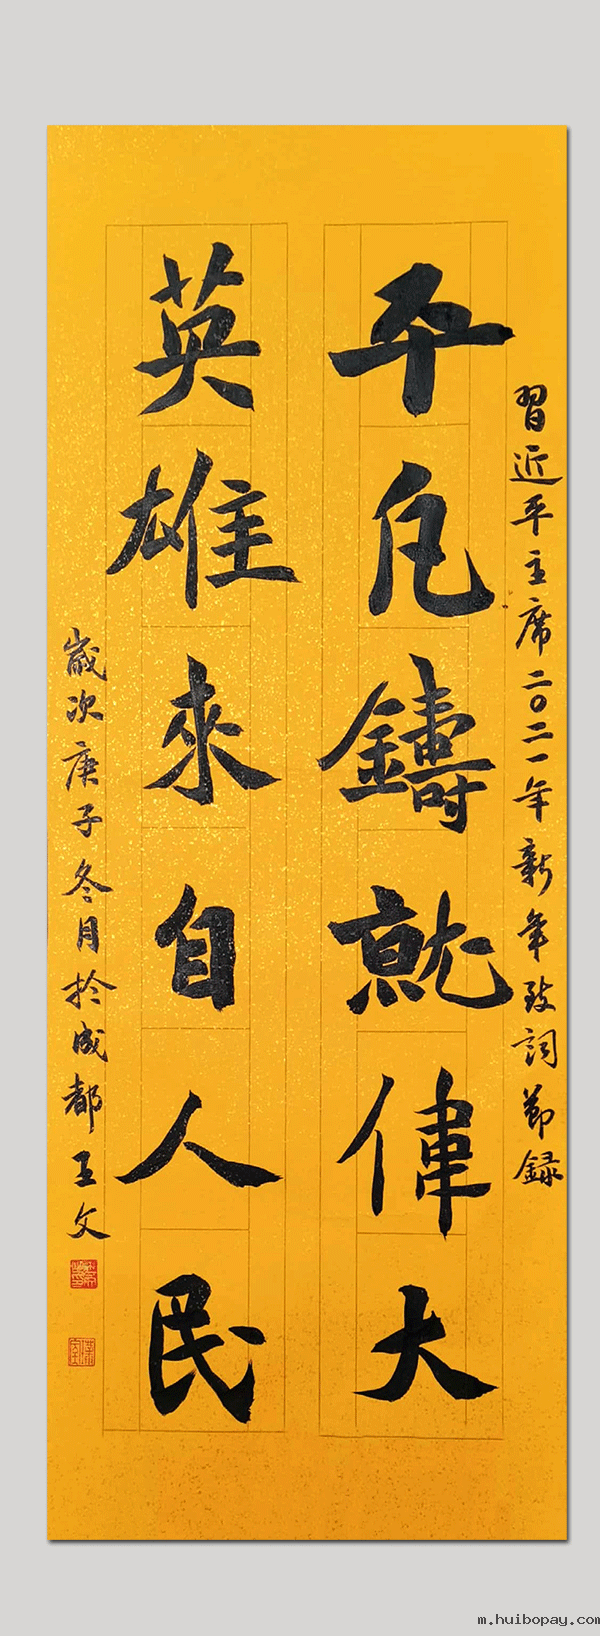 習近平主席二〇二一年新年致詞節録
平凡鑄就偉大
英雄來自人民
歲次庚子冬月於成都王文
m.huibopay.com